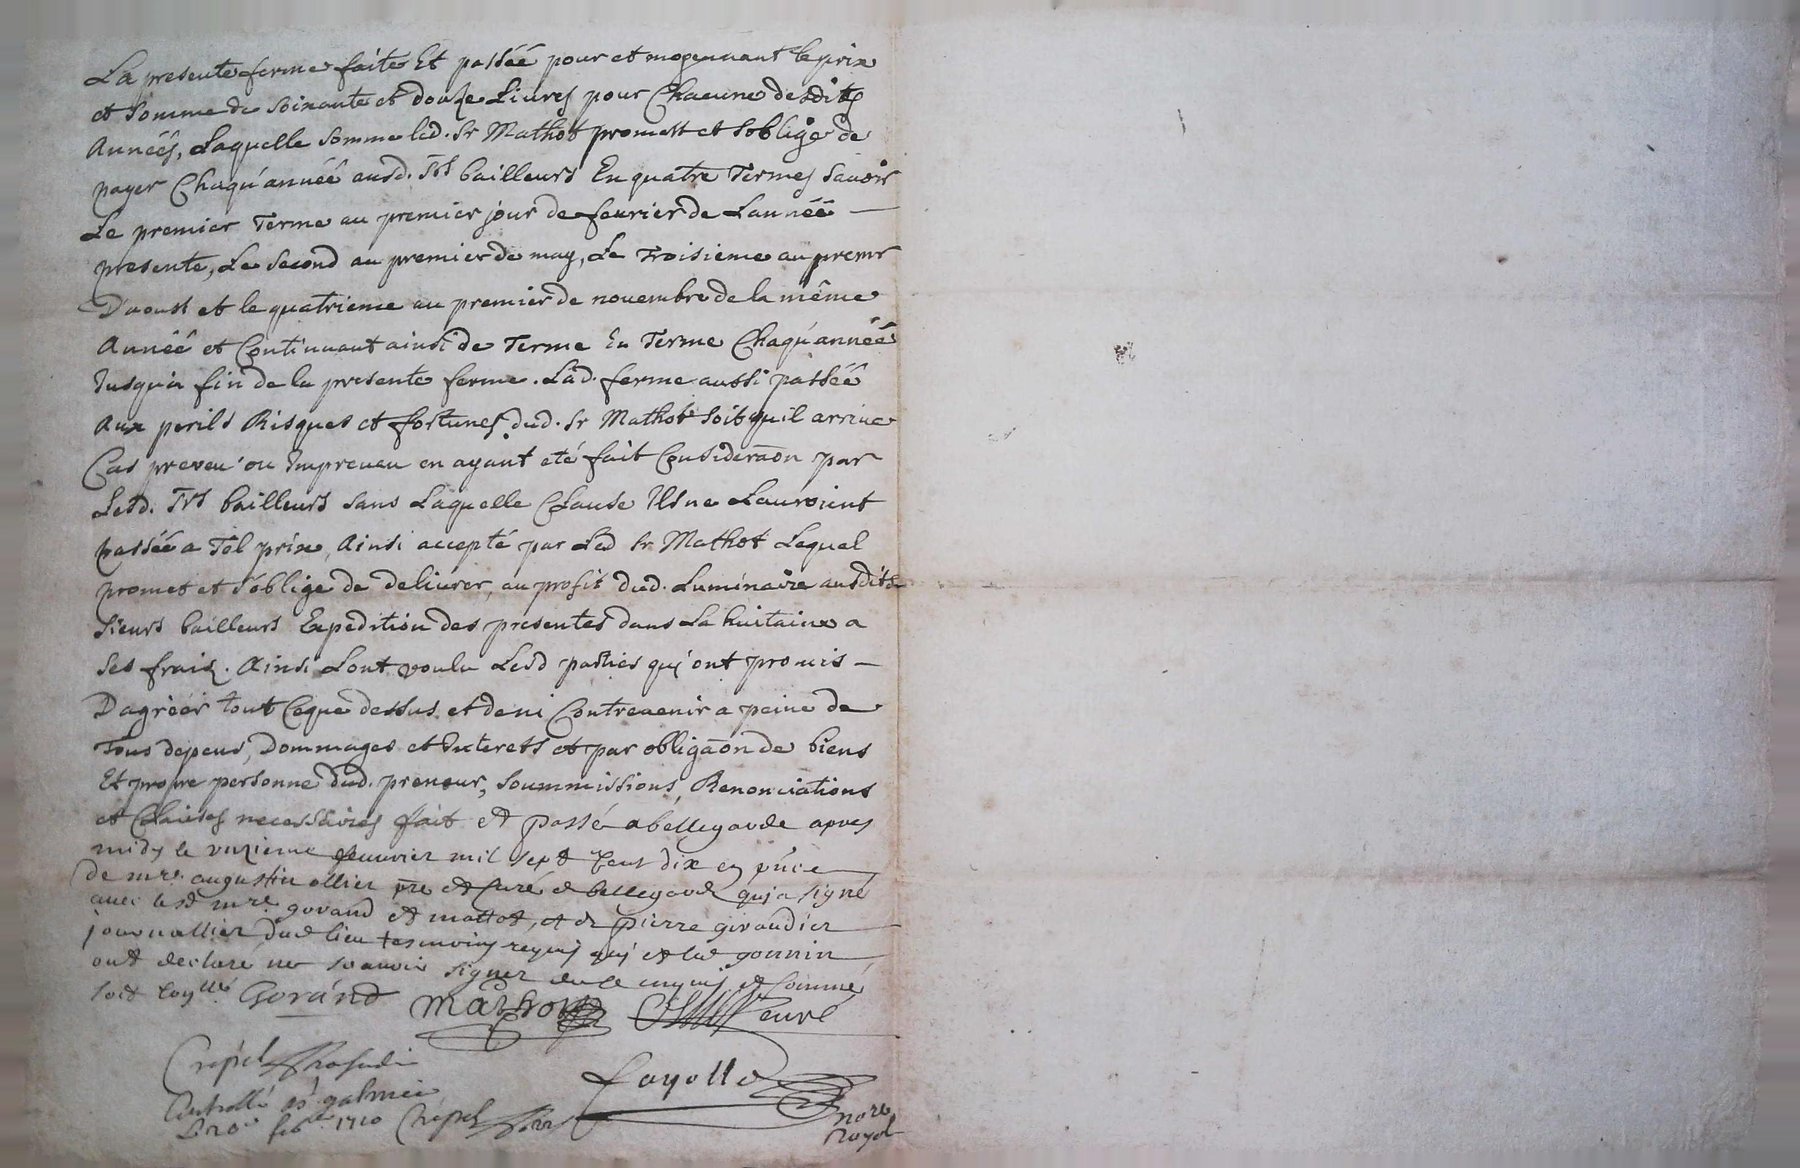 La presente ferme faite Et passéé pour et moyennant le prix
et somme de soixante et douze Livres pour Chacune desdits
Annéés, Laquelle somme led. Sr Mathot promett et soblige de
payer Chaqu'annéé ausd. Srs bailleurs En quatre Termes savoir
Le premier Terme au premier jour de feurier de Lannéé
presente, Le second au premier de may, Le Troisieme au premr
D'aoust et le quatrieme au premier de nouembre de la même
Annéé et Continuant ainsi de Terme En Terme Chaqu'annéé
Jusqu'a fin de la presente ferme. Lad. ferme aussi passéé
Aux perils Risques et fortunes dud. Sr Mathot soit quil arriue
Cas preveu ou Impreueu en ayant eté fait Consideraon par
Lesd. Srs bailleurs sans Laquelle Clause Ils ne Lauroient
passéé a Tel prix, Ainsi accepté par Led Sr Mathot Lequel
promet et s'oblige de deliurer, au profit dud. Luminaire ausdits
Sieurs bailleurs Expedition des presentes dans La huitaine a
ses frais. Ainsi Lont voulu Lesd parties qui ont promis
D'agréer tout Ceque dessus et de ni Contreuenir a peine de
Tous depens, Dommages et Interets et par obligaon de biens
Et propre personne dud. preneur, soummissions, Renonciations
et Clauses necessaires fait et passé a bellegarde apres
midy le unzieme feuurier mil sept Cent dix en pnce
de mre augustin ollier pre et Curé de bellegarde qui a signé
auec lesd mre gorand et mattot, et de pierre giraudier
journallier dud lieu tesmoins requis qui et led gonnin
ont declare ne scauoir signer de ce enquis et sommé
soit Coyllé Gorand Mathot Ollier Curé
Crepet
Fayolle
Controllé a st galmier nore
Le 20e feb 1710 Crepet Royal